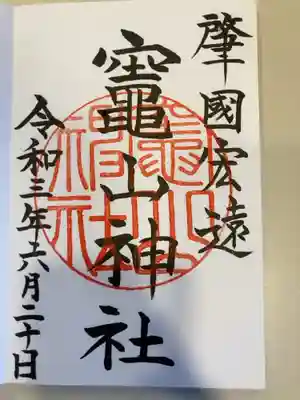 肇國宏遠
竈山神社
令和三年六月二十日